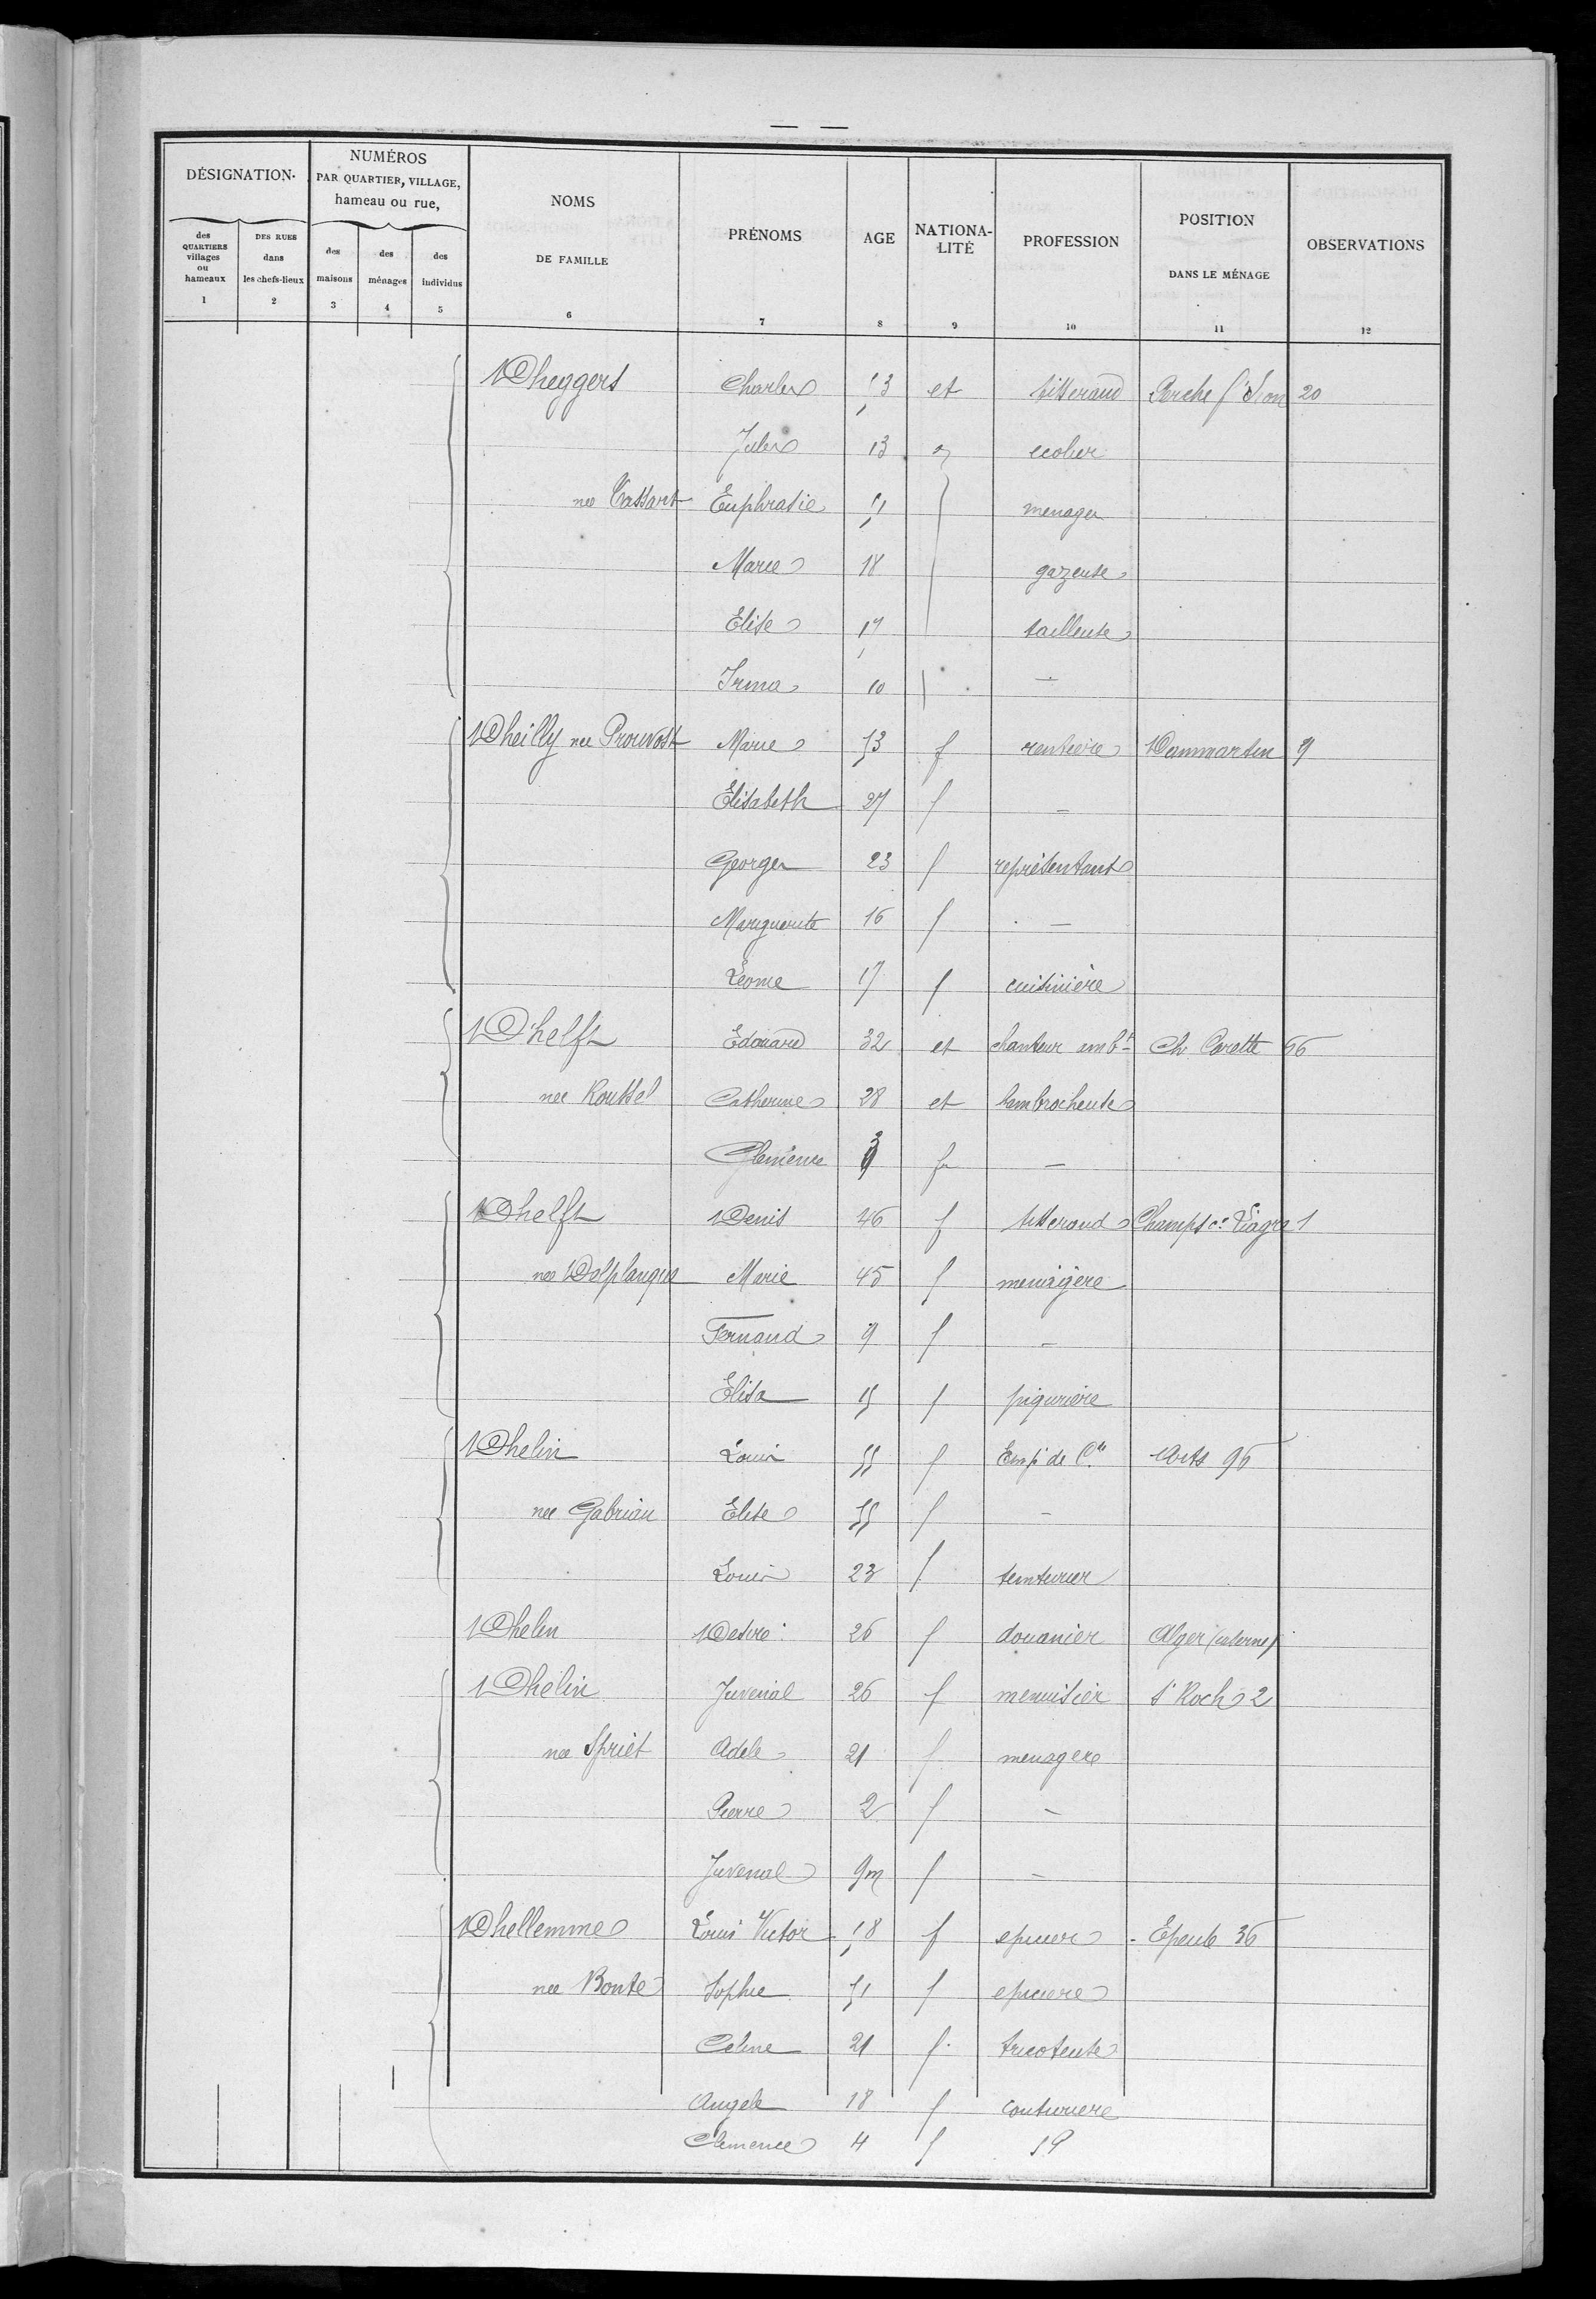 DÉSIGNATION.
NUMÉROS
PAR QUARTIER, VILLAGE,
hameau ou rue,
des QUARTIERS villages ou hameaux
DES RUES dans les chefs-lieux
des maisons
des ménages
des individus
NOMS DE FAMILLE
PRÉNOMS
AGE
NATIONA-LITÉ
PROFESSION
POSITION DANS LE MÉNAGE
OBSERVATIONS
1 2 3 4 5 6 7 8 9 10 11 12
Dheggers Charles 53 et tisserand 20
Jules 13 ecolier
nee Euphrasie menager
Marie 18 gazeuse
Elise 17 tailleuse
Irma 10 —
Dheilly nee Prouvost Marie 53 f rentière Dammartin 9
Elisabeth 27 f —
Georges 23 f représentant
Marguerite 16 f —
Leonie 17 f cuisinière
Dhelft Edouard 32 et chanteur ambt Ch Carette 66
nee Roussel Catherine 28 et bambrocheuse
Clemence 3 f —
Dhelft Denis 46 f tisserand 1
nee Delplanque Marie 45 f menagère
Fernand 9 f —
Elisa 15 f piqurière
Dhelin Louis 55 f Emp de Cce Arts 96
nee Gabriau Elise 55 f —
Louis 23 f teinturier
Dhelin Desire 26 f douanier Alger (caserne)
Dhelin Juvenal 26 f menuisier St Roch 2
nee Spriet Adele 21 f menagere
Pierre 2 f —
Juvenal 9m f —
Dhellemme Louis Victor 58 f epicier Epeule 36
nee Bonte Sophie 51 f epiciere
Celine 21 f tricoteuse
Angele 18 f couturiere
Clemence 4 f SP